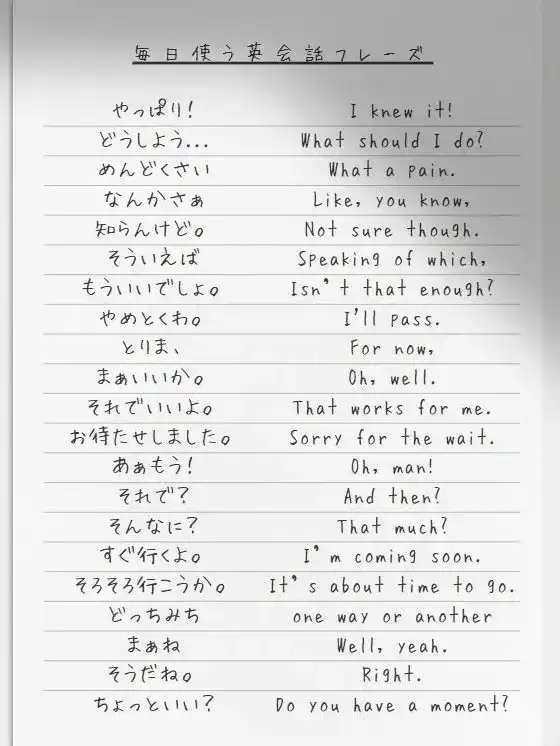 毎日使う英会話フレーズ
やっぱり! I knew it!
どうしよう... What should I do?
めんどくさい What a pain.
なんかさぁ Like, you know,
知らんけど。 Not sure though.
そういえば Speaking of which,
もういいでしょ。 Isn't that enough?
やめとくわ。 I'll pass.
とりま、 For now,
まぁいいか。 Oh, well.
それでいいよ。 That works for me.
お待たせしました。 Sorry for the wait.
あぁもう! Oh, man!
それで? And then?
そんなに? That much?
すぐ行くよ。 I'm coming soon.
そろそろ行こうか。 It's about time to go.
どっちみち one way or another
まぁね Well, yeah.
そうだね。 Right.
ちょっといい? Do you have a moment?